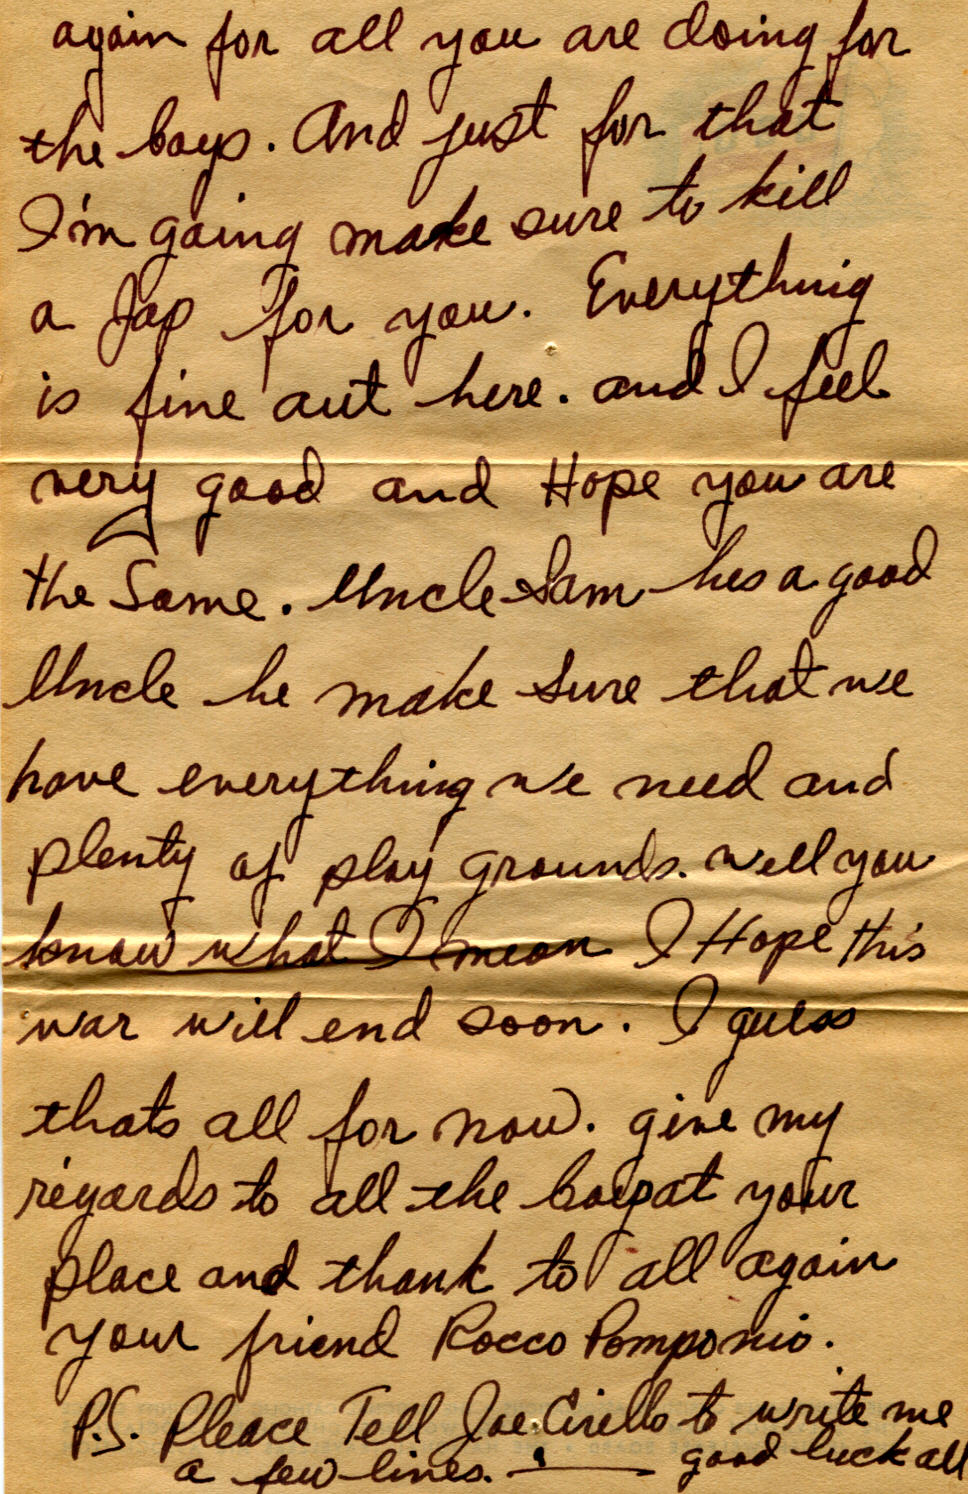 again for all you are doing for
the boys. And just for that
I'm going make sure to kill
a Jap for you. Everything
is fine out here. and I feel
very good and Hope you are
the Same. Uncle Sam hes a good
Uncle he make Sure that we
have everything we need and
plenty of play grounds. well you
know what I mean I Hope this
war will end soon. I guess
thats all for now. give my
regards to all the boys at your
place and thank to all again
your friend Rocco Pomponio.
P.S. Pleace Tell Joe Cirello to write me
a few lines. good luck all